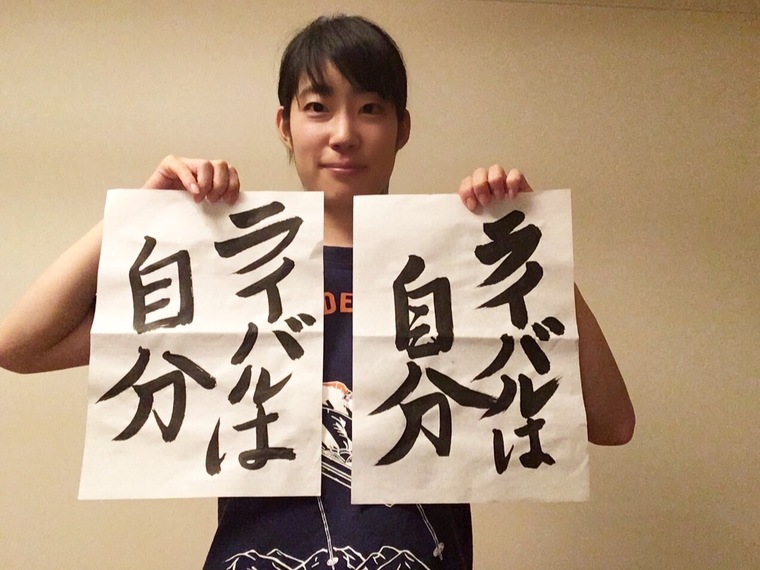 ライバルは
自分
ライバルは
自分